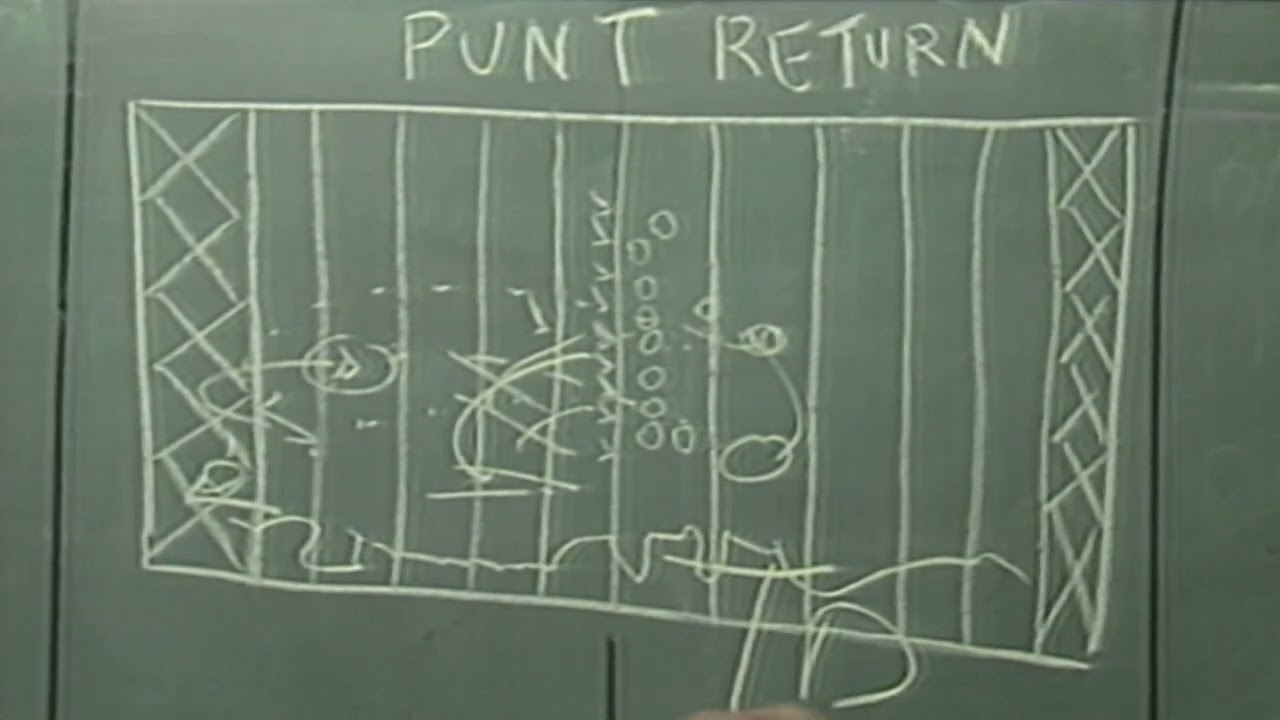 PUNT RETURN
TD